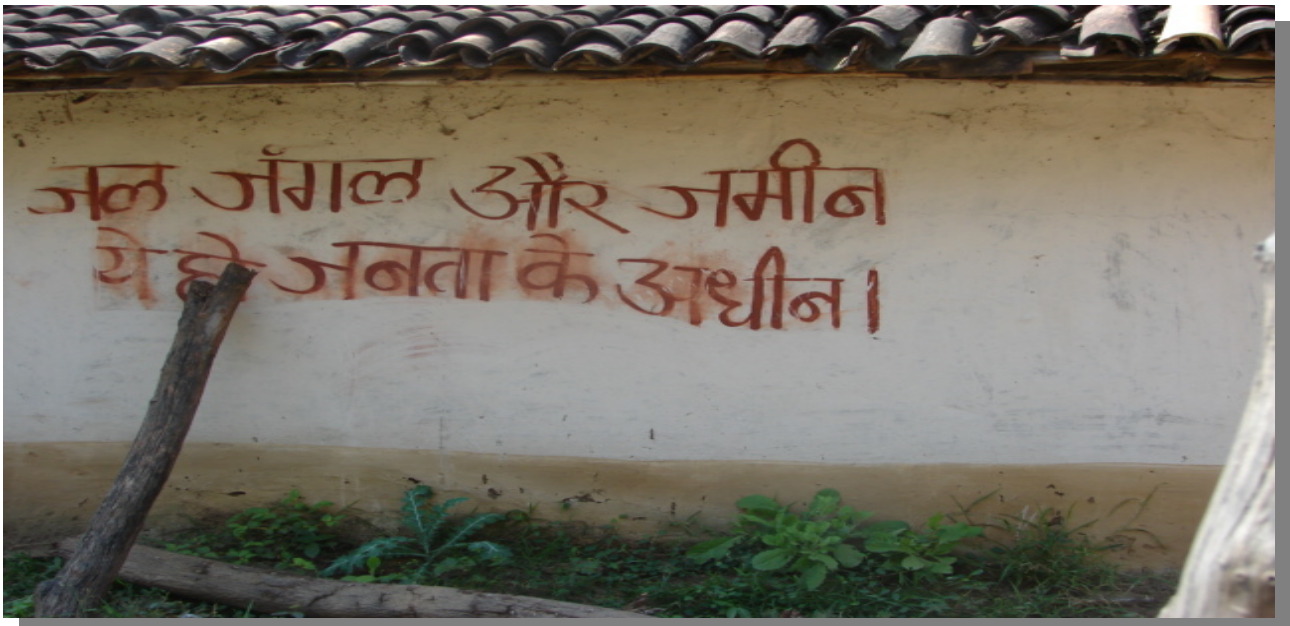 जल जंगल और जमीन
ये हो जनता के अधीन।